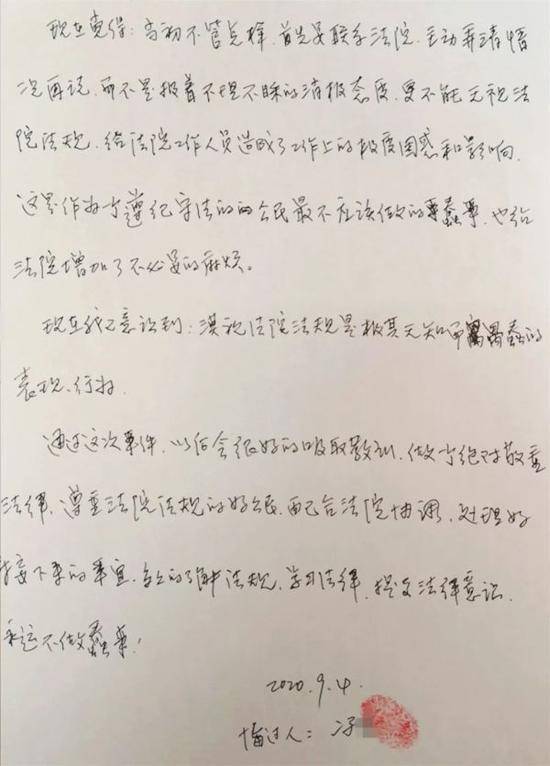 现在觉得：当初不管怎样，首先要联系法院，主动弄清情
况再说，而不是报着不理不睬的消极态度，更不能无视法
院法规，给法院工作人员造成了工作上的极度困惑和影响，
这是作为守遵纪守法的的公民最不应该做的蠢事，也给
法院增加了不必要的麻烦。
现在我已意识到：漠视法院法规是极其无知而愚蠢的
表现、行为。
通过这次事件，以后会很好的吸取教训，做个绝对敬重
法律，遵重法院法规的好公民，配合法院协调，处理好
接下来的事宜，多多的了解法规，学习法律，提交法律意识，
永远不做蠢事！
2020.9.4.
悔过人：冯